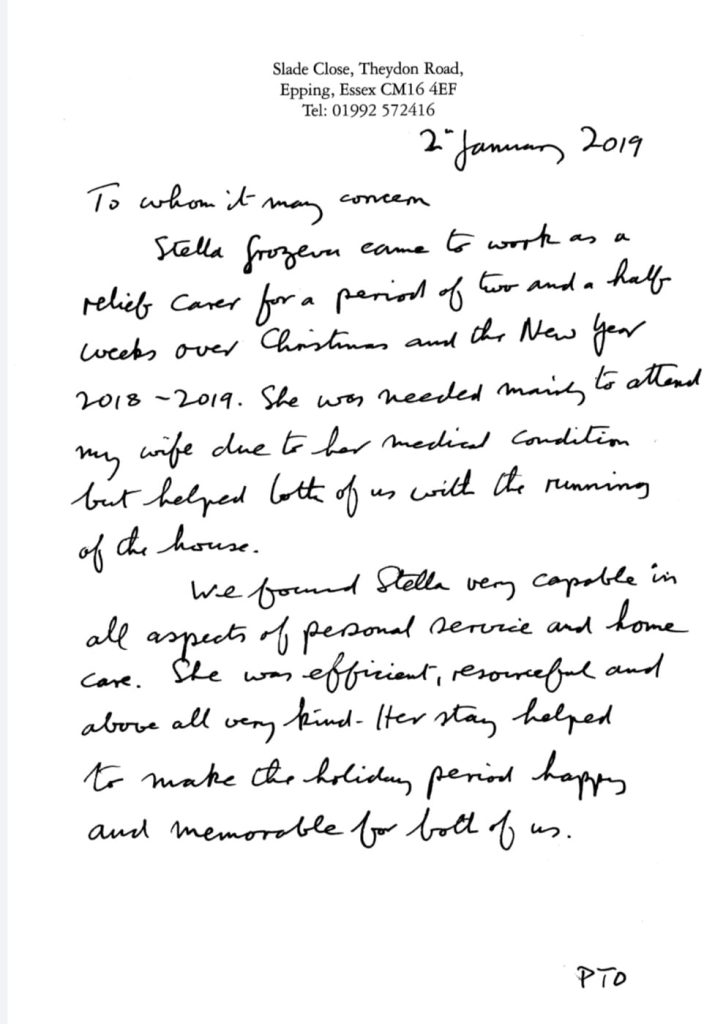 Slade Close, Theydon Road,
Epping, Essex CM16 4EF
Tel: 01992 572416
2nd January 2019
To whom it may concern
Stella Grozeva came to work as a
relief carer for a period of two and a half
weeks over Christmas and the New Year
2018 - 2019. She was needed mainly to attend
my wife due to her medical condition
but helped both of us with the running
of the house.
We found Stella very capable in
all aspects of personal service and home
care. She was efficient, resourceful and
above all very kind - Her stay helped
to make the holiday period happy
and memorable for both of us.
PTO